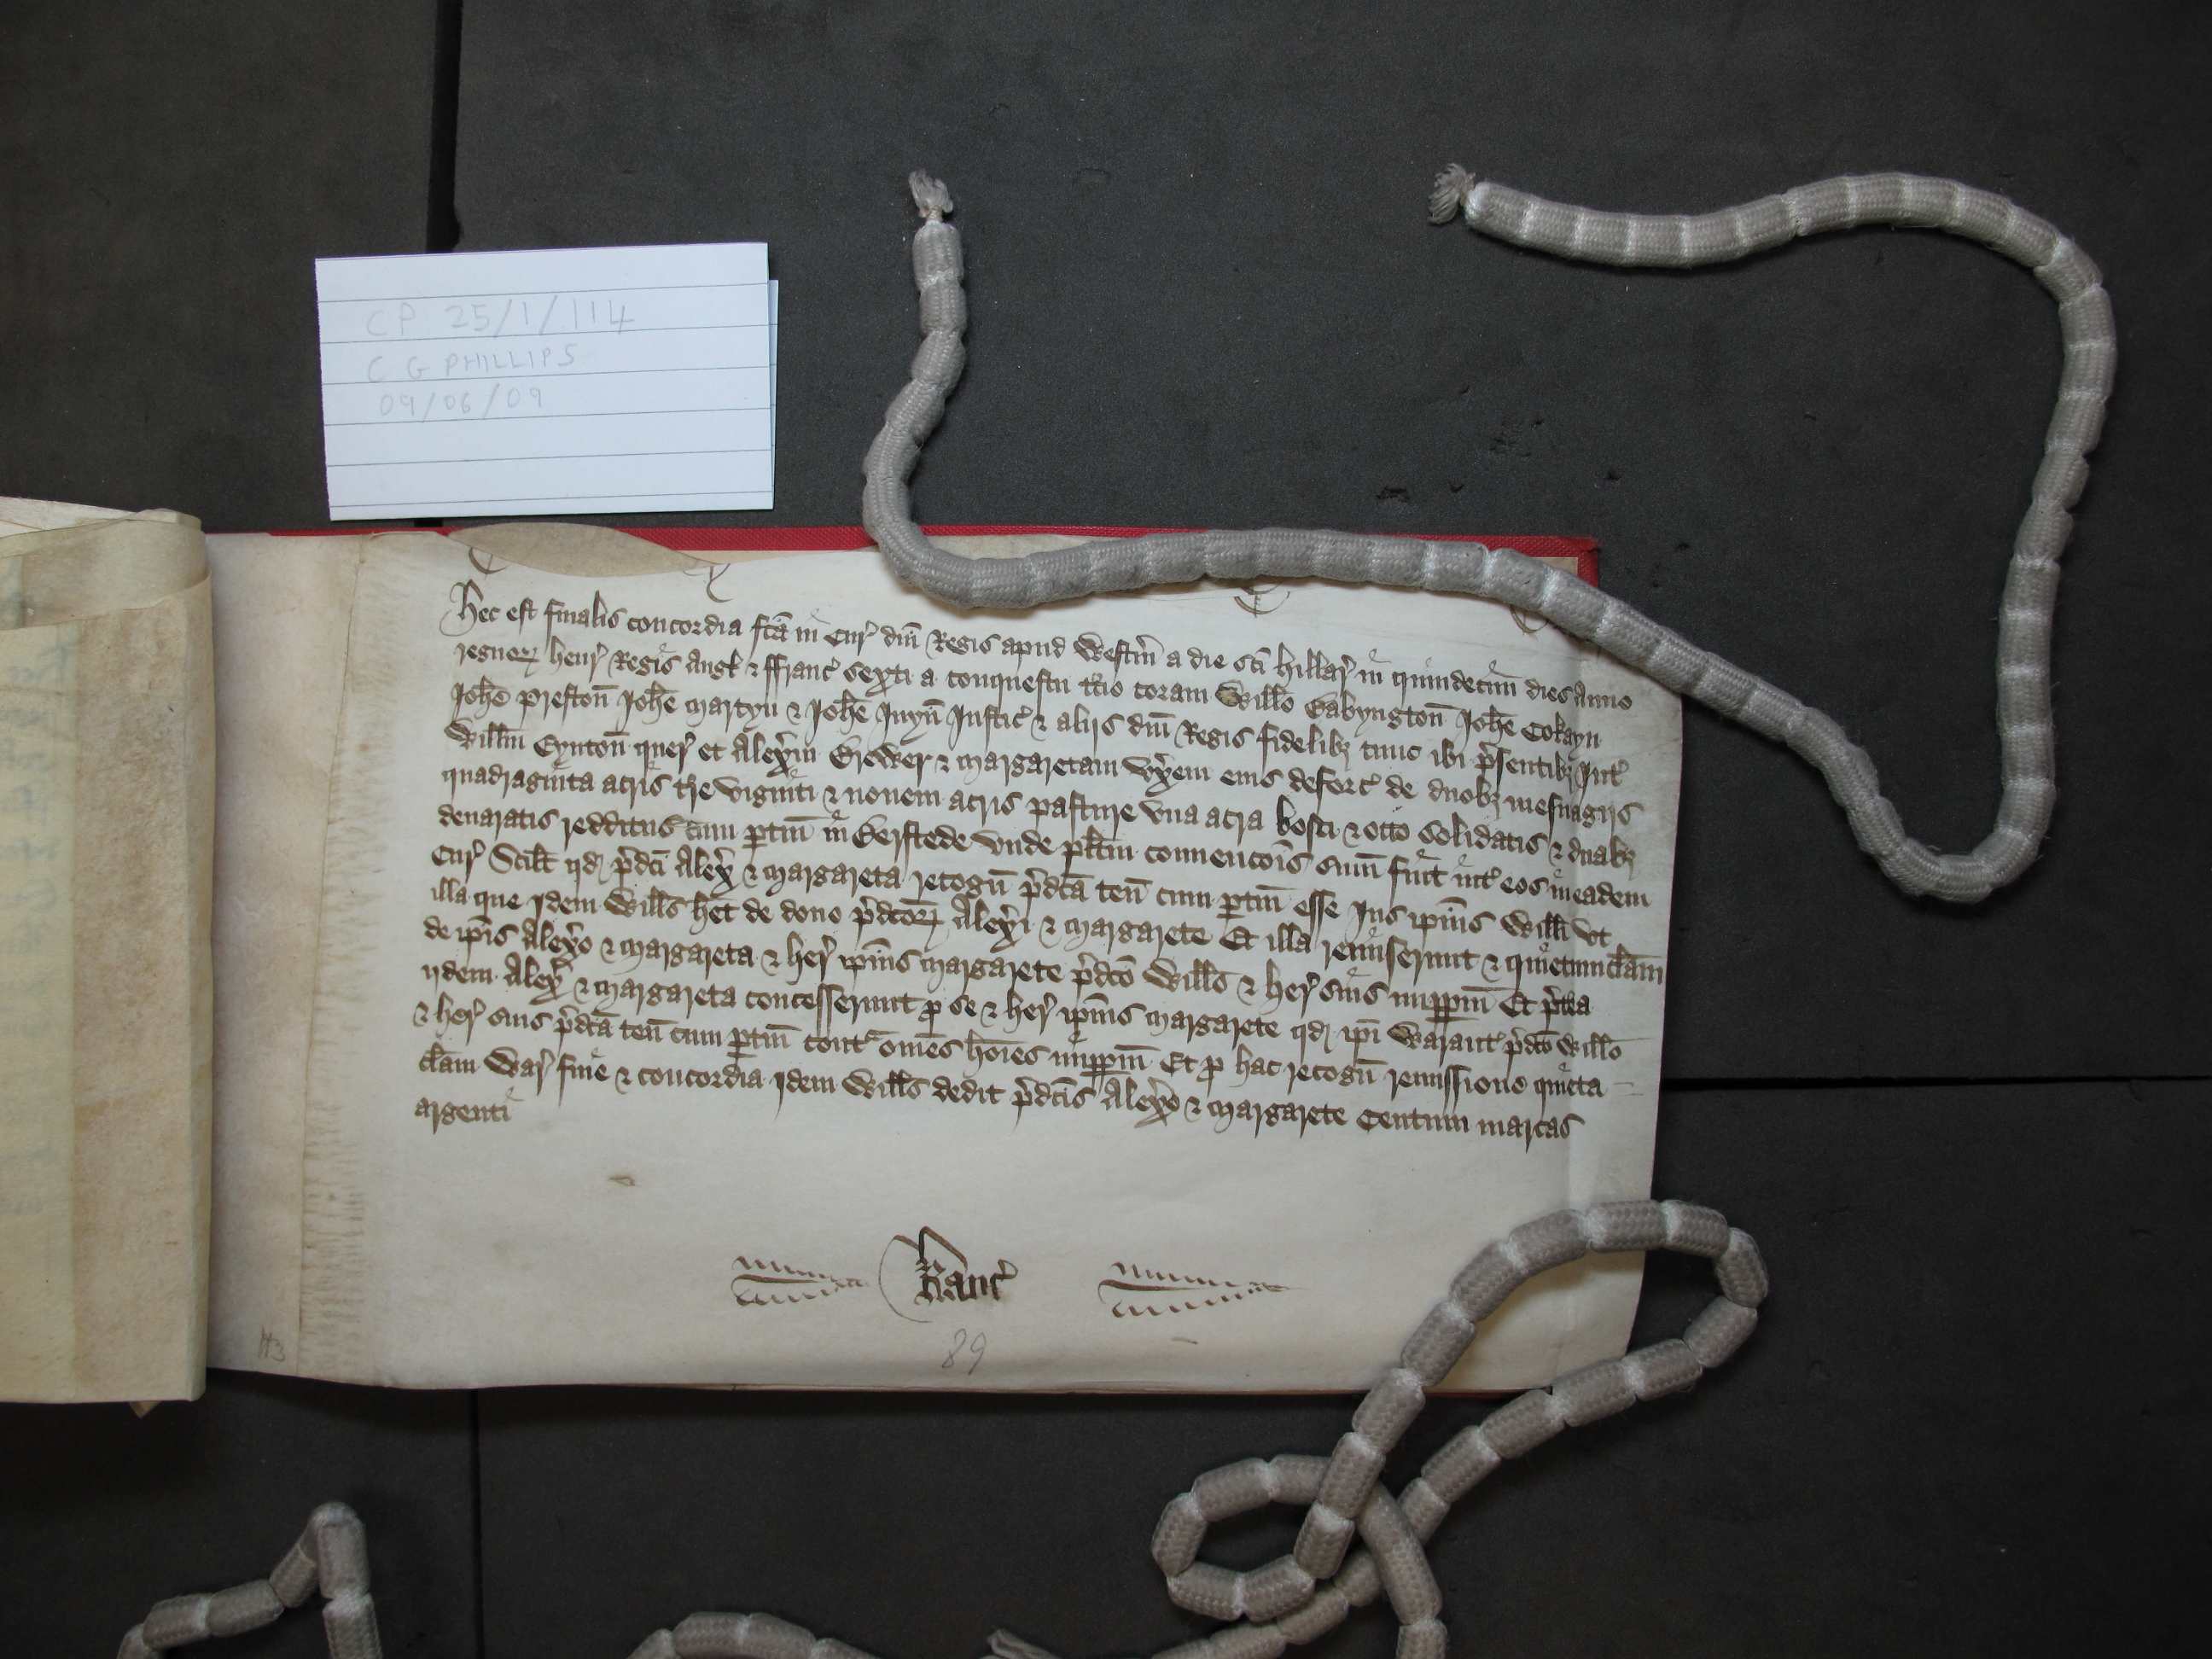 CP 25/1/114
C G PHILLIPS
09/06/09
Hec est finalis concordia fcā in Cur' dnī Regis apud Westm̄ a die scī Hillar' in quindecim dies anno
regnoꝝ Henr' Regis Angl' & Franc' sexti a conquestu t'cio coram Willō Babyngton̄ Johē Cokayn
Johē Preston̄ Johē Martyn & Johē Juyn̄ Justic' & alijs dnī Regis fidelibꝫ tunc ibi p'sentibꝫ Int'
Willm̄ Eynton̄ quer' et Alexm̄ Brewer & Margaretam vxem eius deforc' de duobꝫ mesuagijs
quadraginta acris t're viginti & nouem acris pasture vna acra bosci & octo solidatis & duabꝫ
denaratis redditus cum ptin̄ in Berstede vnde plītm conuencōis sum̄ fuit int' eos in eadem
Cur' Scilt qd p'dcī Alex' & Margareta recogn̄ p'dcā ten̄ cum ptin̄ esse Jus ipīus Willī vt
illa que idem Wills het de dono p'dcōꝝ Alexi & Margarete Et illa remiserunt & quietumclam̄
de ipīs Alexo & Margareta & her' ipīus Margarete p'dcō Willō & her' suis imppm̄ Et p't'ea
ijdem Alex' & Margareta concesserunt ꝓ se & her' ipīus Margarete qd ipī Warant' p'dcō Willō
& her' suis p'dcā ten̄ cum ptin̄ cont' om̄es hoīes imppm̄ Et ꝓ hac recogn̄ remissione quieta
clam̄ War' fine & concordia idem Wills dedit p'dcīs Alexo & Margarete Centum marcas
argenti
Kanc'
89
113